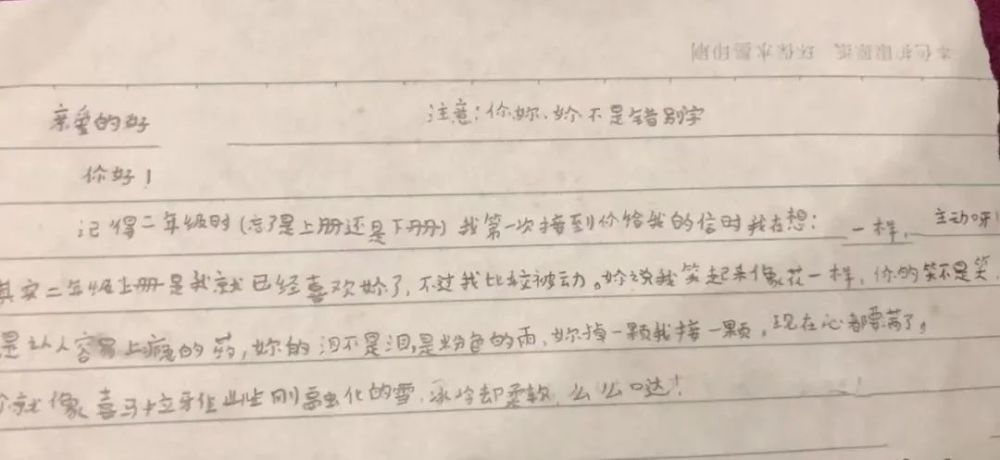 本色护眼原纸 环保水墨印刷
亲爱的好
注意:你妳、妗不是错别字
你好!
记得二年级时(忘了是上册还是下册)我第一次接到你给我的信时我在想: 一样, 主动呀!
其实二年级上册是我就已经喜欢妳了,不过我比较被动。妳说我笑起来像花一样,你的笑不是笑
是让人容易上瘾的药,妳的泪不是泪,是粉色的雨,妳掉一颗我接一颗,现在心都要满了。
就像喜马拉牙佳山些刚融化的雪,冰冷却柔软,么么哒!